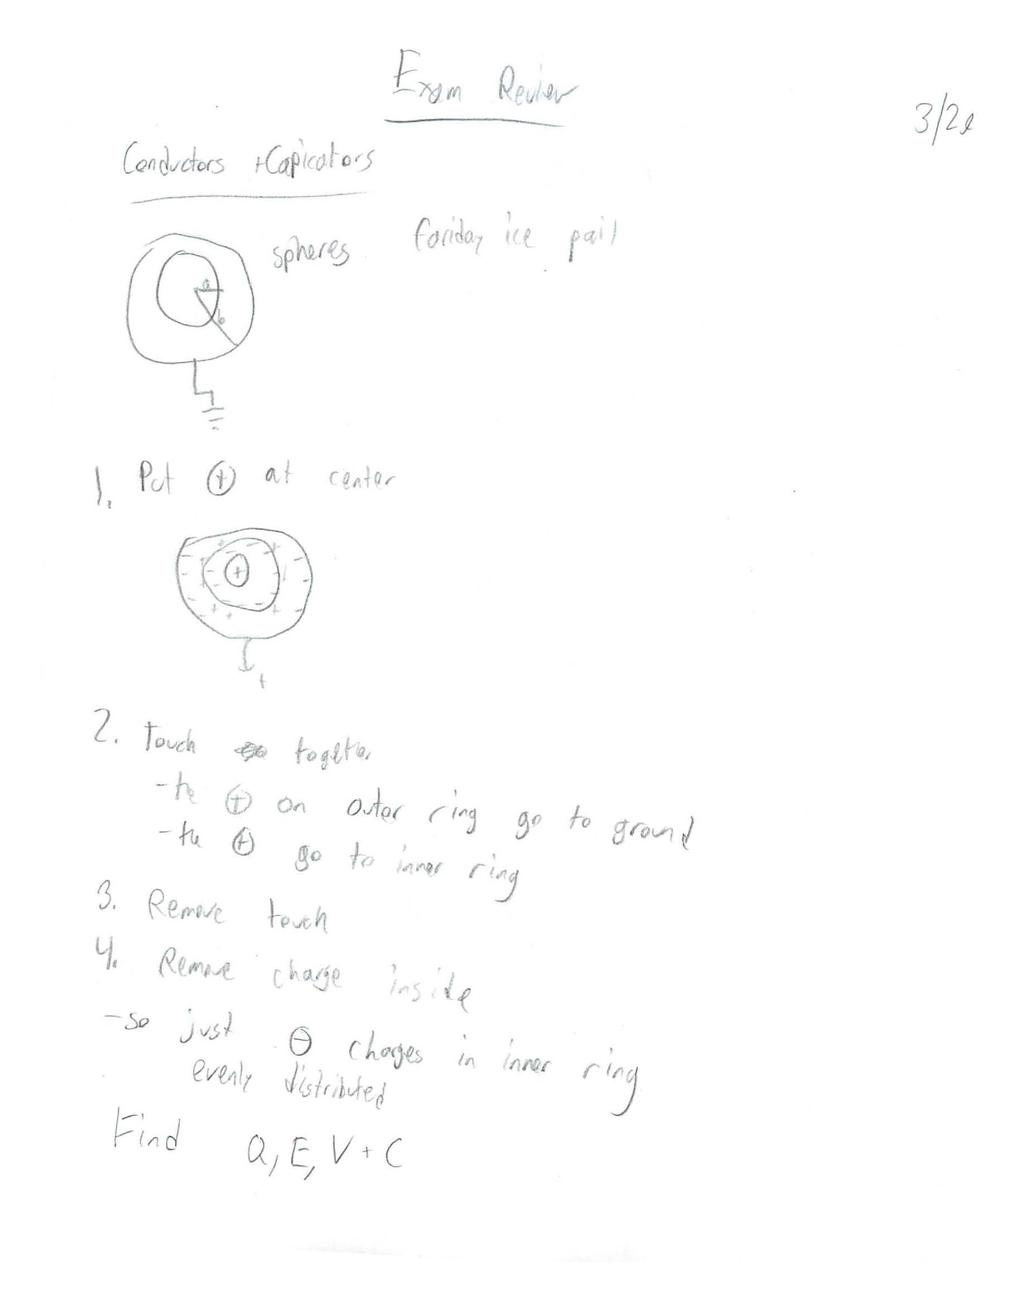 Exam Review
3/2
Conductors + Capicators
spheres
Fariday ice pail
a
b
1. Put ⊕ at center
+
2. Touch together
- the ⊕ on outer ring go to ground
- the ⊕ go to inner ring
3. Remove touch
4. Remove charge inside
- so just ⊖ charges in inner ring
evenly distributed
Find Q, E, V + C